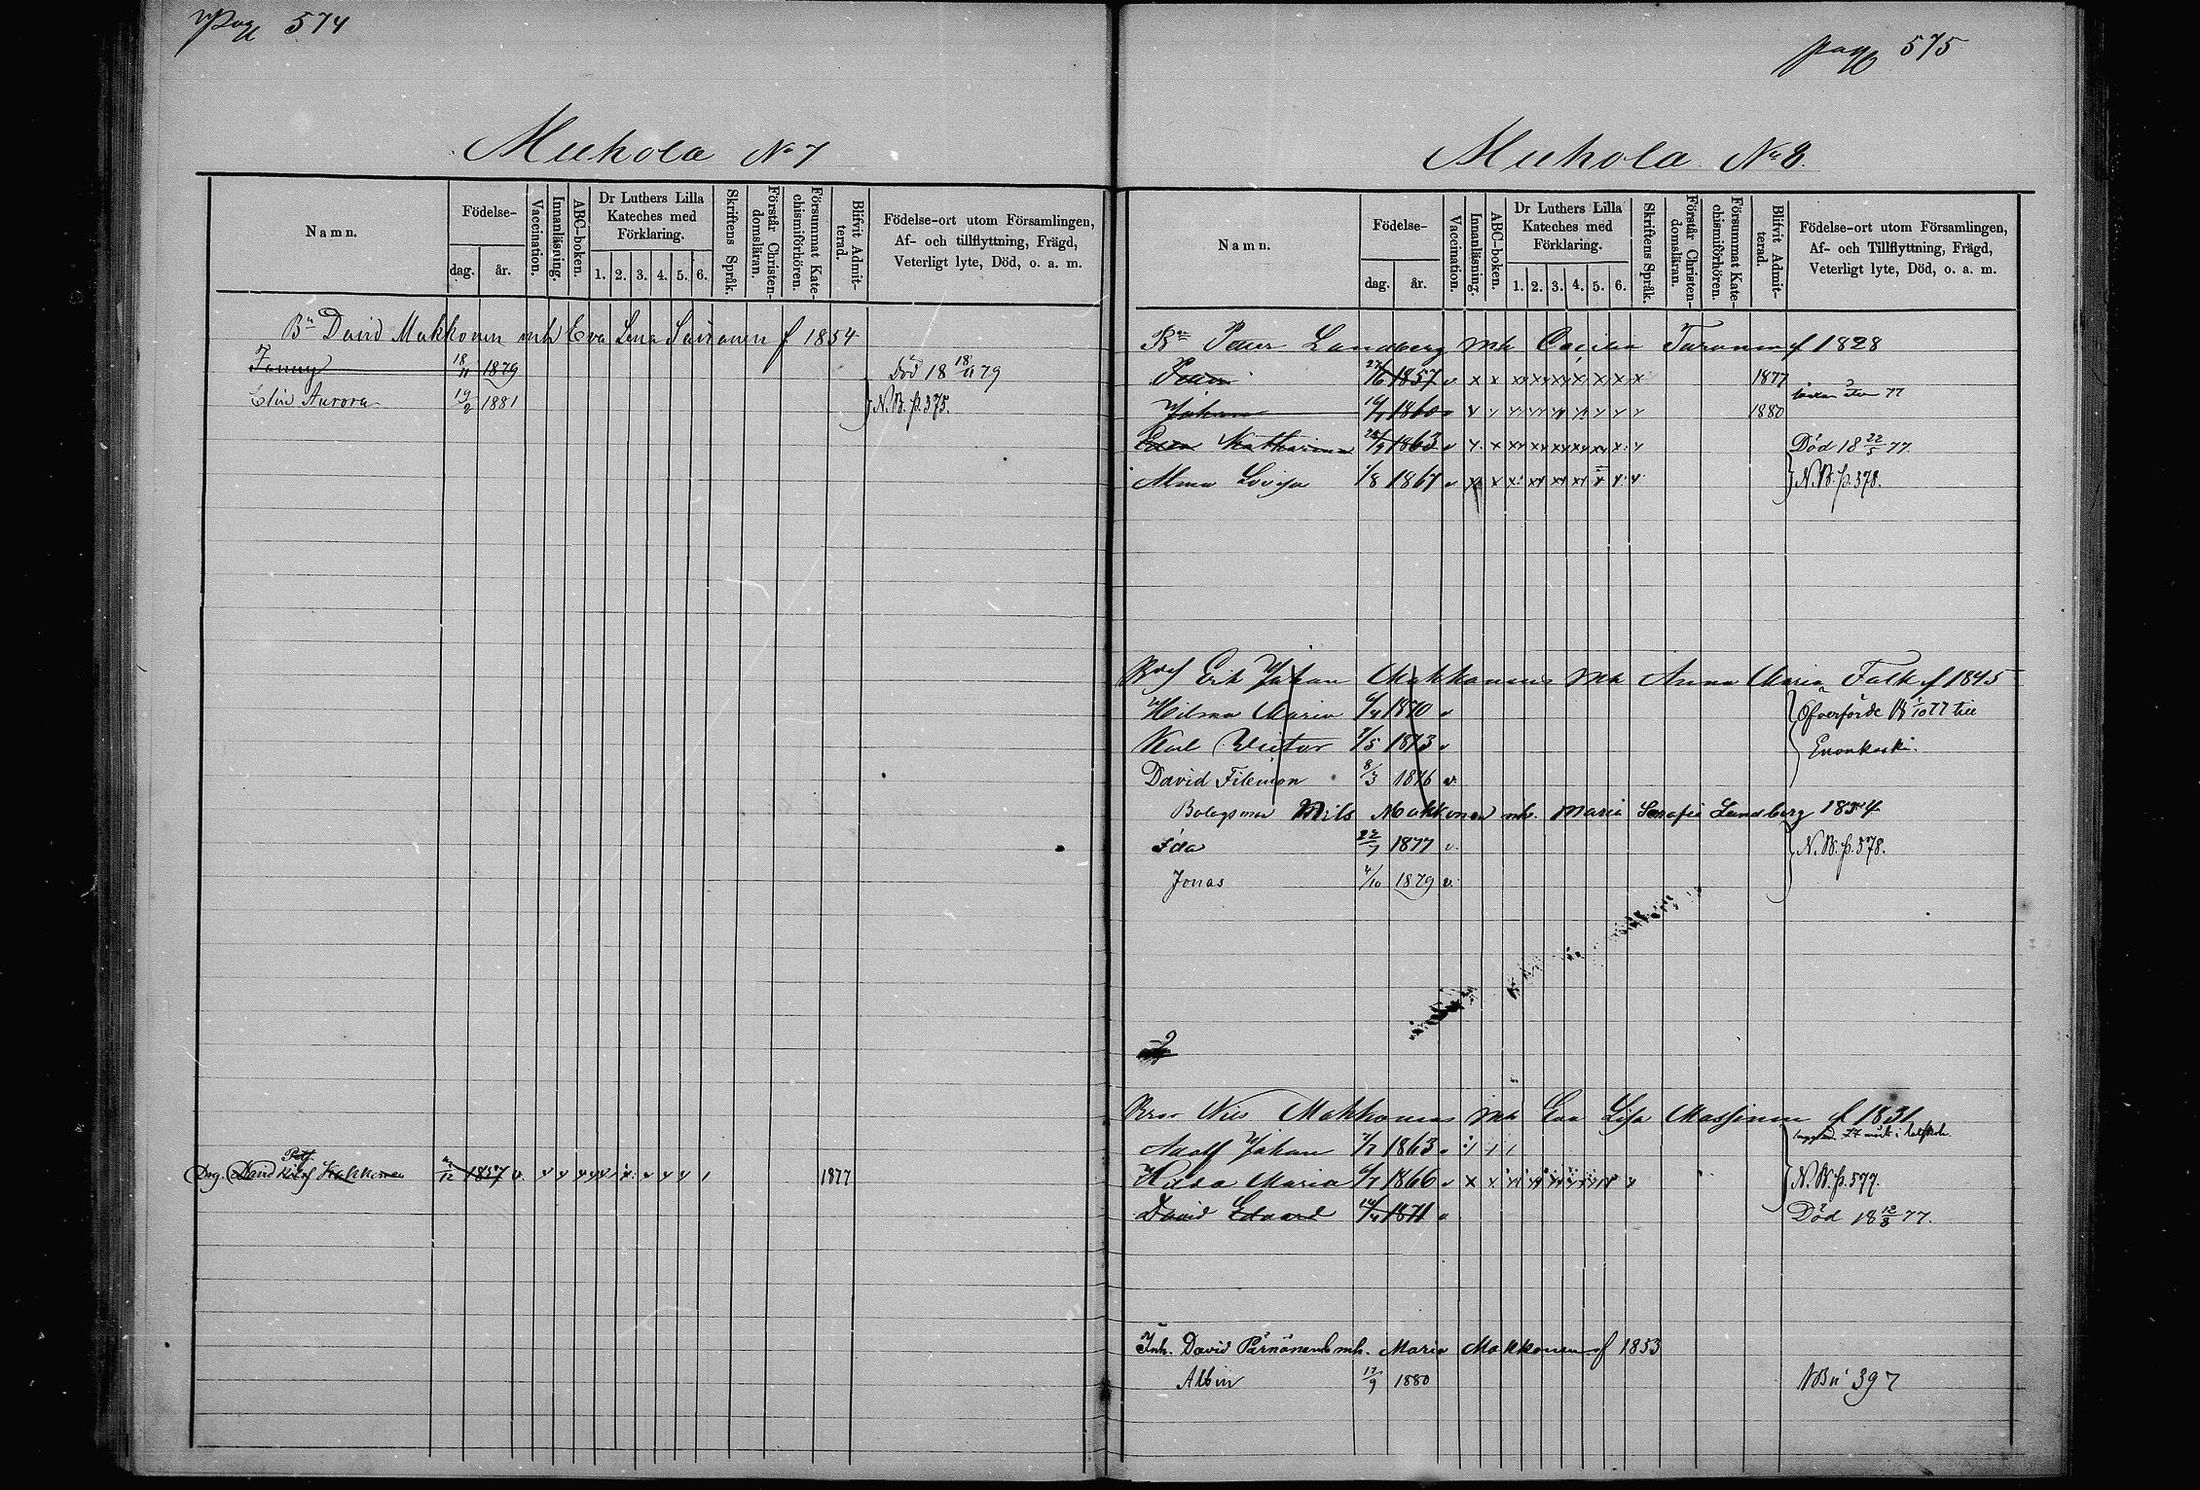 Pag 574
Muhola No 7
Namn.
Födelse-
dag.
år.
Vaccination.
Innanläsning.
ABC-boken.
Dr Luthers Lilla
Kateches med
Förklaring.
1. 2. 3. 4. 5. 6.
Skriftens Språk.
Förstår Christen-
domsläran.
Försummat Kate-
chismiförhören.
Blifvit Admit-
terad.
Födelse-ort utom Församlingen,
Af- och tillflyttning, Frägd,
Veterligt lyte, Död, o. a. m.
Bn David Makkonen mh Eva Lena f 1854
Fanny 18/11 1879 Död 18 18/11 79
Elin Aurora 19/2 1881 N.B. p. 375.
Drg. David 1857 v 1877
pag 575
Muhola No 8.
Namn.
Födelse-
dag.
år.
Vaccination.
Innanläsning.
ABC-boken.
Dr Luthers Lilla
Kateches med
Förklaring.
1. 2. 3. 4. 5. 6.
Skriftens Språk.
Förstår Christen-
domsläran.
Försummat Kate-
chismiförhören.
Blifvit Admit-
terad.
Födelse-ort utom Församlingen,
Af- och Tillflyttning, Frägd,
Veterligt lyte, Död, o. a. m.
Bn Petter Landberg mh Cecilia Turonen f 1828
1857 v x x x x x x x x x 1877
77
Johan 1860 v 1880
Katharina 1863 v Död 18 22/5 77.
Alma Lovisa 1/8 1867 v N.B. p. 378.
Erik Johan Makkonens mh Anna Maria Falk f 1845
Hilma Maria 6/4 1870 v Öfverförde 18 1/10 77 till
Karl Victor 7/5 1873 v Enonkoski.
David Filemon 8/3 1876 v.
Bolagsman Nils Makkonen mh. Maria Serafia Lundberg 1854
Ida 22/7 1877 v. N.B. p. 378.
Jonas 4/10 1879 v.
Nils Makkonens mh Eva Lisa Massinen f 1831
Adolf Johan 1863 v
Hilda Maria 6/7 1866 v N.B. p. 577.
David Edvard 1871 v Död 18 12/8 77.
Inh. David Pärnänens mh. Maria Makkonen f 1853
Albin 12/9 1880 397